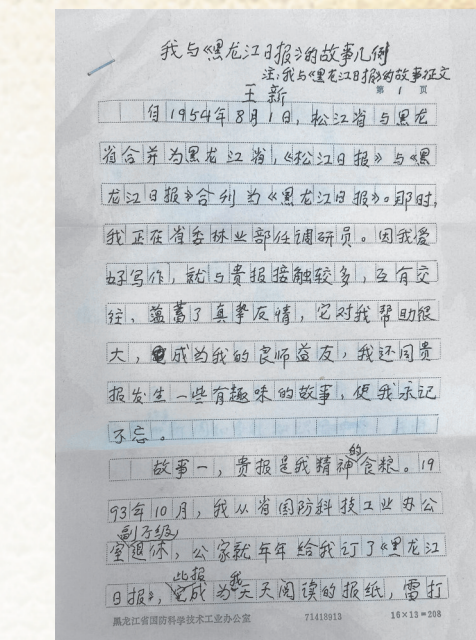 我与《黑龙江日报》的故事几例
注:我与《黑龙江日报》的故事征文
王新
第 1 页
自1954年8月1日,松江省与黑龙
省合并为黑龙江省,《松江日报》与《黑
龙江日报》合刊为《黑龙江日报》。那时,
我正在省委林业部任调研员。因我爱
好写作,就与贵报接触较多,互有交
往、蕴蓄了真挚友情,它对我帮助很
大,成为我的良师益友,我还同贵
报发生一些有趣味的故事,使我永记
不忘。
故事一,贵报是我精神的食粮。19
93年10月,我从省国防科技工业办公
室副厅级退休,公家就年年给我订了《黑龙江
日报》,此报成为我天天阅读的报纸,雷打
黑龙江省国防科学技术工业办公室
71418913
16×13=208